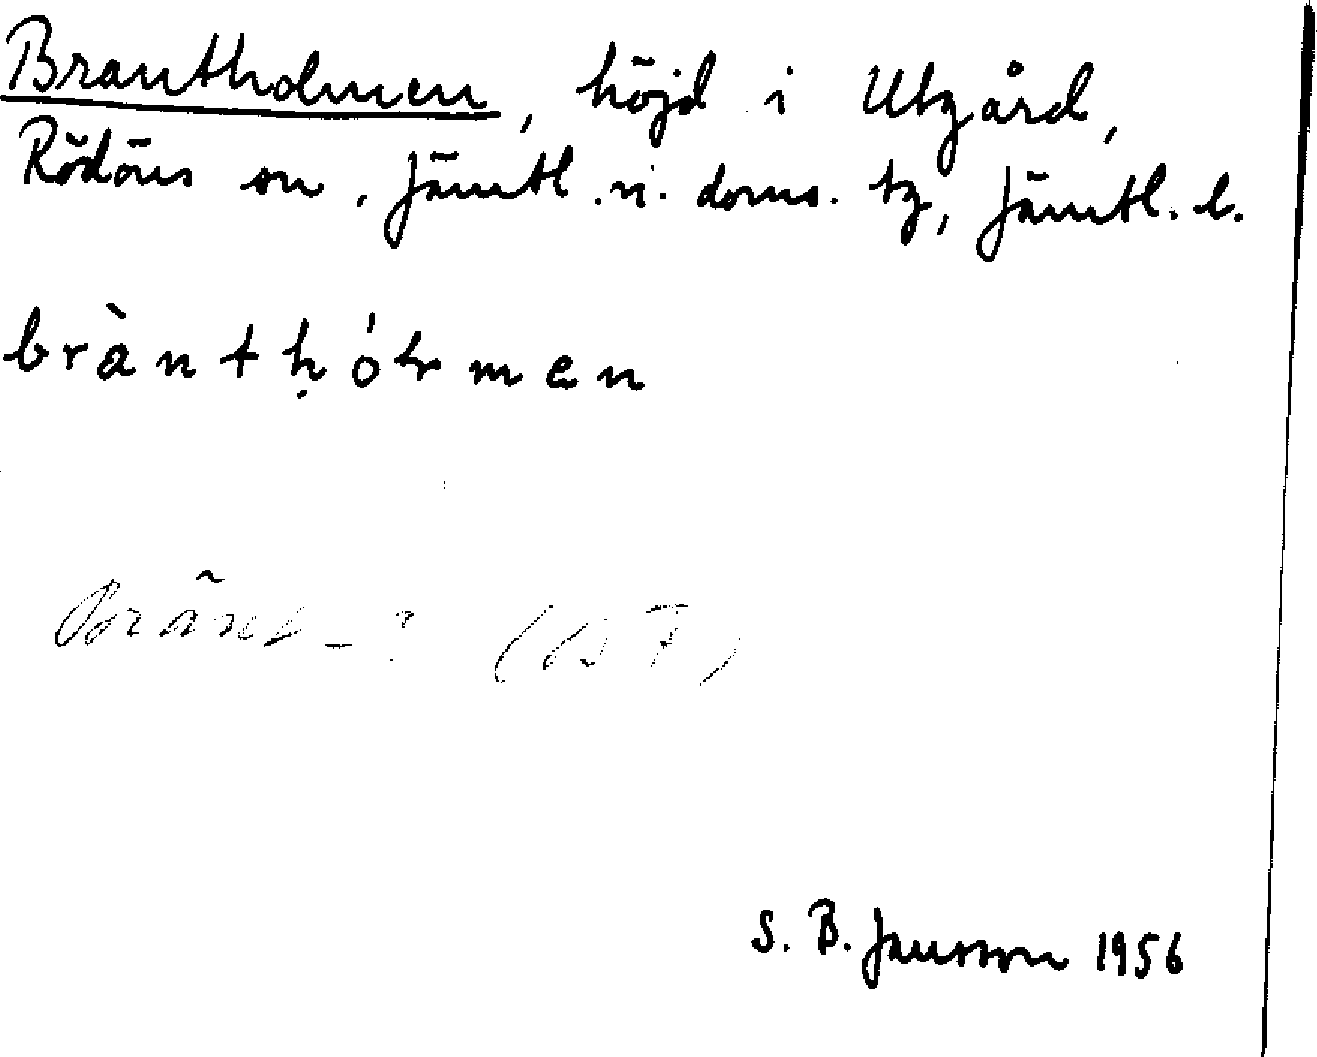 Brantholmen, höjd i Utgård,
Rödöns sn, Jämtl. n. doms. tg, Jämtl. l.
brànthólmen
Bränt-? (
S. B. Jansson 1956